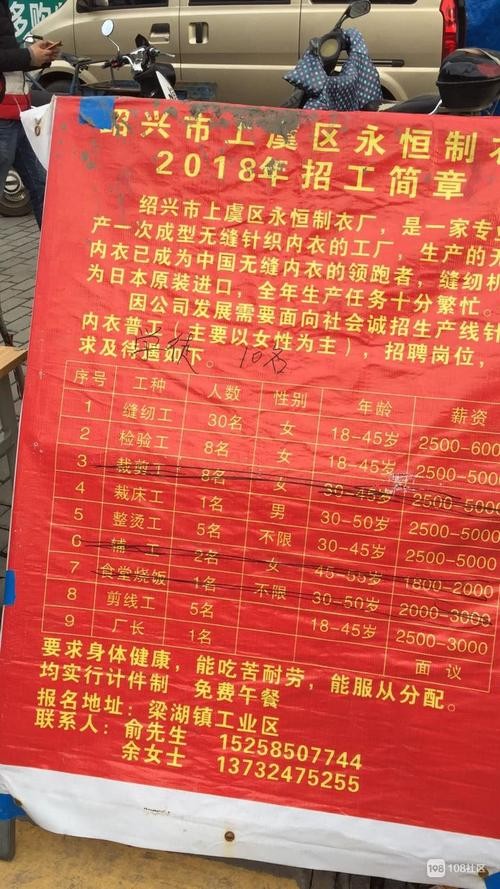 多购
绍兴市上虞区永恒制衣
2018年招工简章
绍兴市上虞区永恒制衣厂，是一家专
产一次成型无缝针织内衣的工厂，生产的无
内衣已成为中国无缝内衣的领跑者，缝纫机
为日本原装进口，全年生产任务十分繁忙。
因公司发展需要面向社会诚招生产线针
内衣普工（主要以女性为主），招聘岗位，
求及待遇如下。 学徒 10名
序号 工种 人数 性别 年龄 薪资
1 缝纫工 30名 女 18-45岁 2500-600
2 检验工 8名 女 18-45岁 2500-500
3 裁剪工 8名 女 30-45岁 2500-5000
4 裁床工 1名 男 30-50岁 2500-5000
5 整烫工 5名 不限 30-45岁 2500-5000
6 辅工 2名 女 45-55岁 1800-2000
7 食堂烧饭 1名 不限 30-50岁 2000-3000
8 剪线工 5名 18-45岁 2500-3000
9 厂长 1名 面议
要求身体健康，能吃苦耐劳，能服从分配。
均实行计件制 免费午餐
报名地址：梁湖镇工业区
联系人：俞先生 15258507744
余女士 13732475255
108 108社区